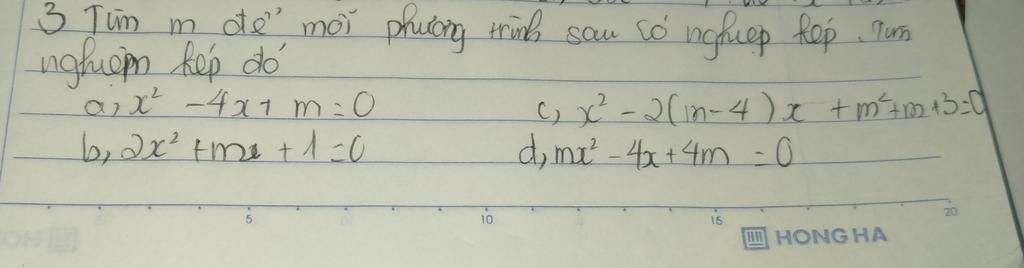 3 Tìm m để mỗi phương trình sau có nghiệp kép. Tìm
nghiệm kép đó
a, x² - 4x + m = 0
c, x² - 2(m-4)x + m² + m + 3 = 0
b, 2x² + mx + 1 = 0
d, mx² - 4x + 4m = 0
5 10 15 20
HONG HA